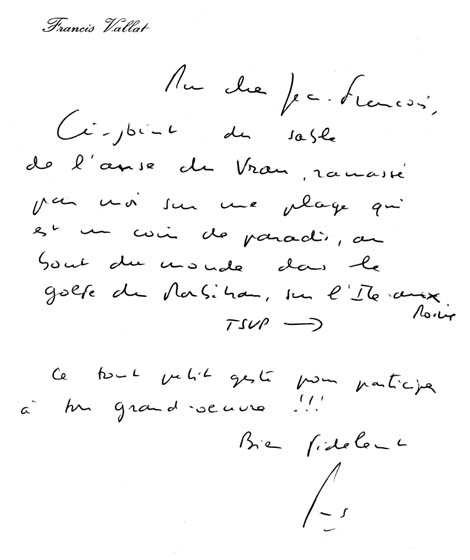 Francis Vallat
Mon cher Jean-François,
Ci-joint du sable
de l'anse du Vran, ramassé
par moi sur une plage qui
est un coin de paradis, au
bout du monde dans le
golfe du Morbihan, sur l'Ile aux
Moines
TSVP →
Ce tout petit geste pour participer
à ton grand-oeuvre !!!
Bien fidèlement